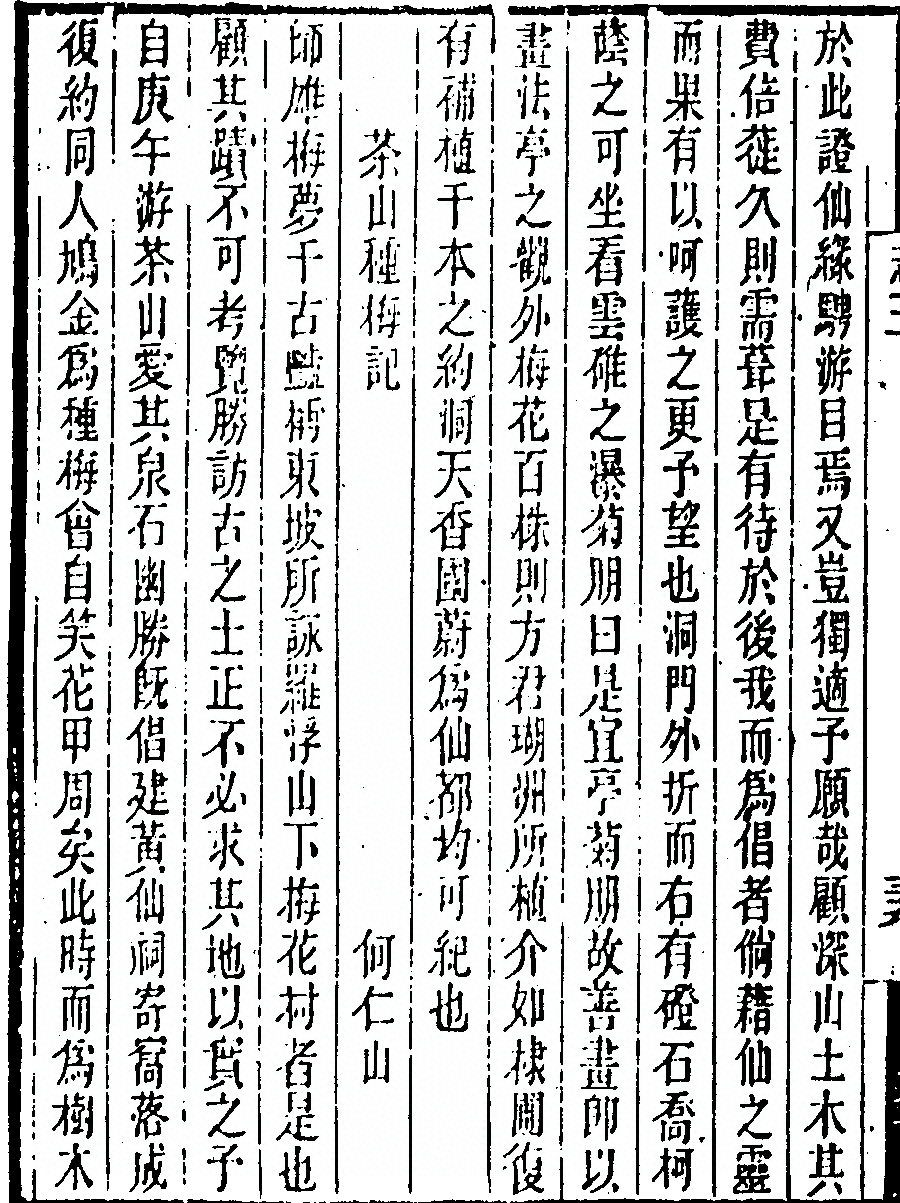 於此證仙緣騁游目焉又豈獨適予願哉顧深山土木其
費倍蓰久則需葺是有待於後我而為倡者倘藉仙之靈
而果有以呵護之更予望也洞門外折而右有磴石喬柯
蔭之可坐看雲碓之瀑菊朋曰是宜亭菊朋故善畫卽以
畫法亭之觀外梅花百株則方君瑚洲所植介如棣圃復
有補植千本之約洞天香國蔚為仙都均可紀也
茶山種梅記　何仁山
師雄梅夢千古豔稱東坡所詠羅浮山下梅花村者是也
顧其蹟不可考覽勝訪古之士正不必求其地以實之予
自庚午游茶山愛其泉石幽勝旣倡建黃仙祠寄窩落成
復約同人鳩金為種梅會自笑花甲周矣此時而為樹木